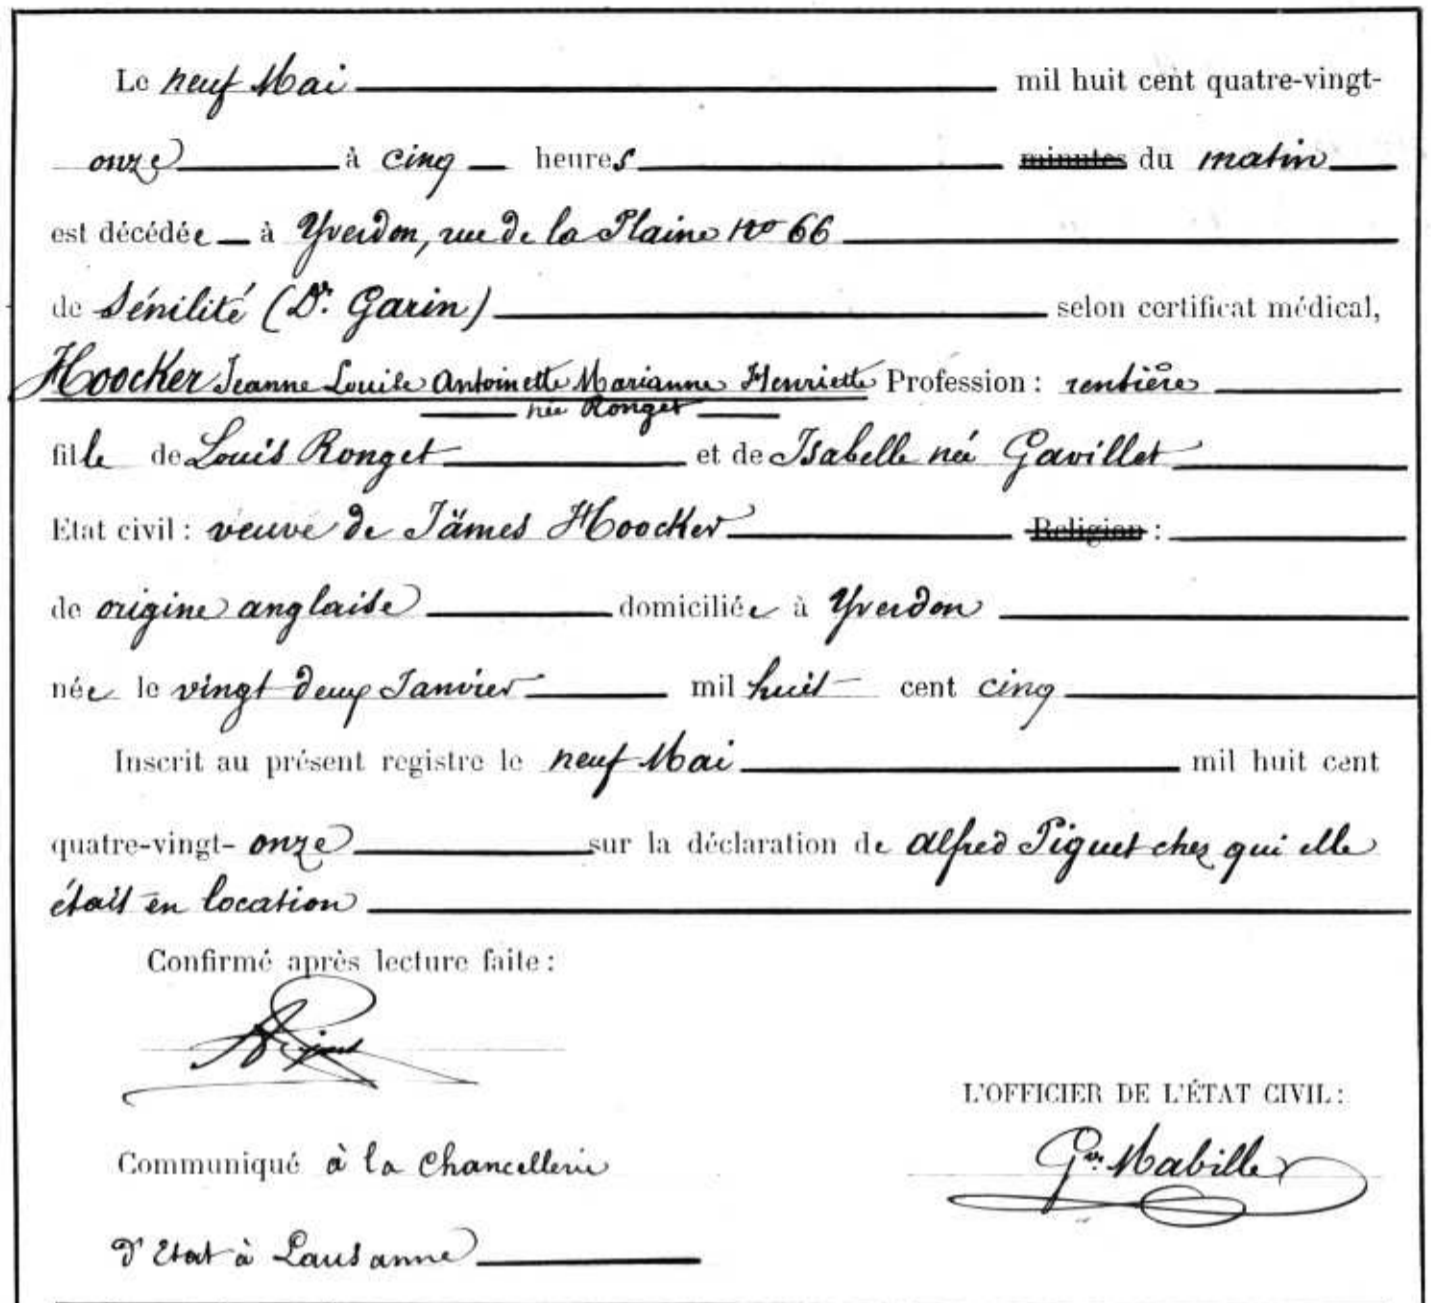 Le neuf Mai mil huit cent quatre-vingt-
onze à cinq heures minutes du matin
est décédée à Yverdon, rue de la Plaine No 66
de Sénilité (Dr. Garin) selon certificat médical,
Hoocker Jeanne Louise Antoinette Marianne Henriette Profession : rentière
née Ronget
fille de Louis Ronget et de Isabelle née Gavillet
Etat civil : veuve de Jämes Hoocker Religion :
de origine anglaise domiciliée à Yverdon
née le vingt deux Janvier mil huit cent cinq
Inscrit au présent registre le neuf Mai mil huit cent
quatre-vingt- onze sur la déclaration de Alfred Piguet chez qui elle
était en location
Confirmé après lecture faite :
L'OFFICIER DE L'ÉTAT CIVIL :
Communiqué à la Chancellerie
Mabille
d'Etat à Lausanne